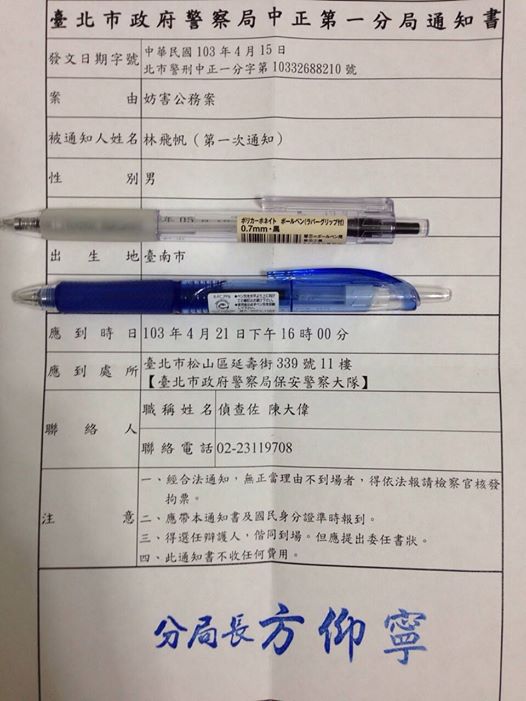 臺北市政府警察局中正第一分局通知書
發文日期字號 中華民國 103 年 4 月 15 日
北市警刑中正一分字第 10332688210 號
案由 妨害公務案
被通知人姓名 林飛帆（第一次通知）
性別 男
ポリカーボネイト ボールペン(ラバーグリップ付)
0.7mm・黒
出生地 臺南市
應到時日 103 年 4 月 21 日下午 16 時 00 分
應到處所 臺北市松山區延壽街 339 號 11 樓
【臺北市政府警察局保安警察大隊】
聯絡人 職稱姓名 偵查佐 陳大偉
聯絡電話 02-23119708
注意 一、經合法通知，無正當理由不到場者，得依法報請檢察官核發
拘票。
二、應帶本通知書及國民身分證準時報到。
三、得選任辯護人，偕同到場。但應提出委任書狀。
四、此通知書不收任何費用。
分局長 方仰寧